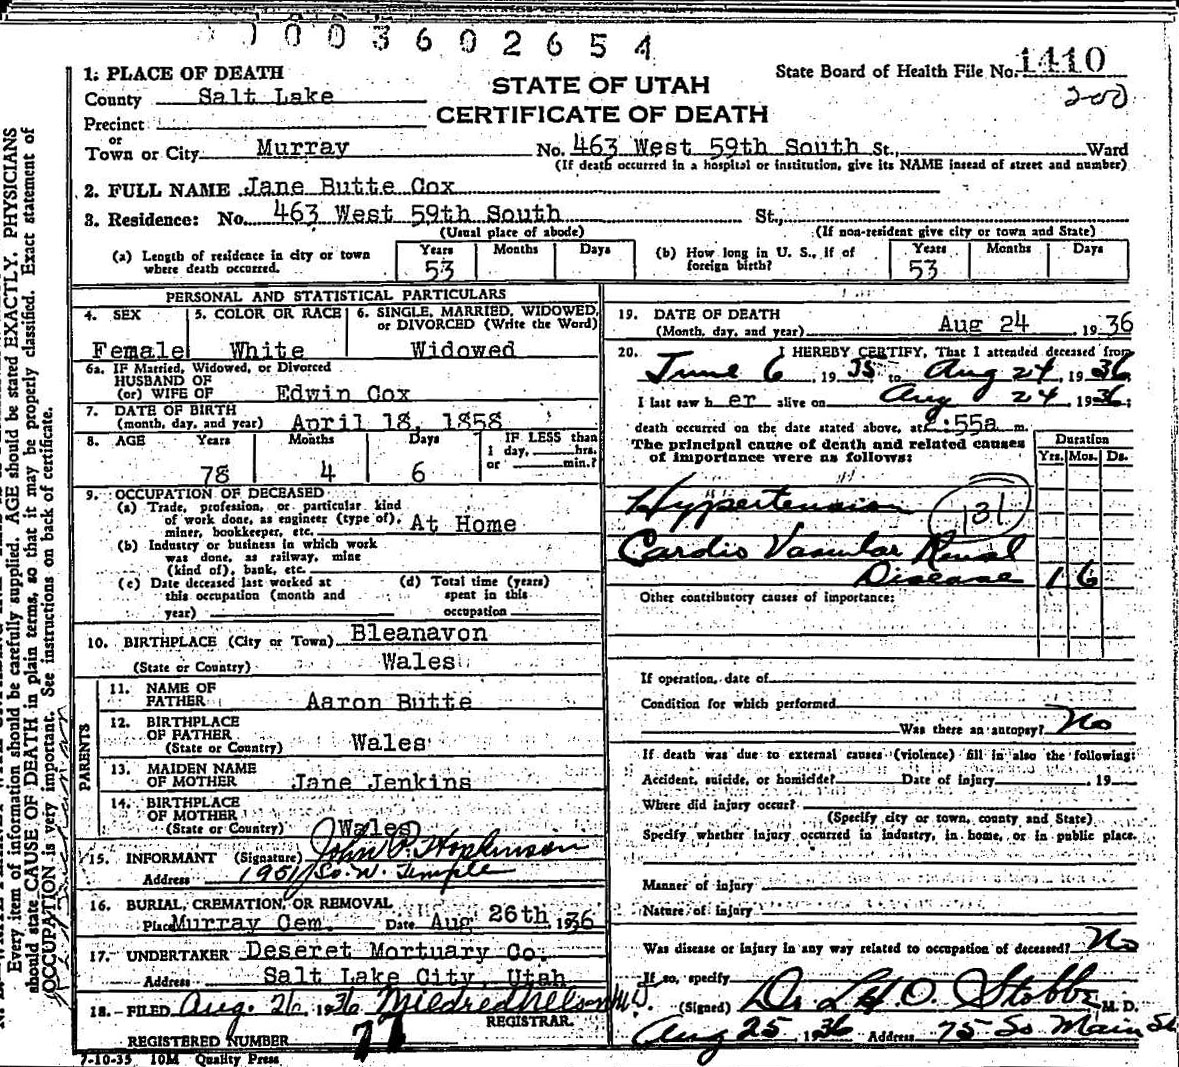 0003602654
State Board of Health File No. 1410
200
STATE OF UTAH
CERTIFICATE OF DEATH
1. PLACE OF DEATH
County Salt Lake
Precinct
or
Town or City Murray No. 463 West 59th South St., Ward
(If death occurred in a hospital or institution, give its NAME insead of street and number)
2. FULL NAME Jane Butte Cox
3. Residence: No. 463 West 59th South St.,
(Usual place of abode) (If non-resident give city or town and State)
(a) Length of residence in city or town where death occurred. Years 53 Months Days
(b) How long in U. S., if of foreign birth? Years 53 Months Days
PERSONAL AND STATISTICAL PARTICULARS
4. SEX Female
5. COLOR OR RACE White
6. SINGLE, MARRIED, WIDOWED, or DIVORCED (Write the Word) Widowed
6a. IF Married, Widowed, or Divorced
HUSBAND OF
(or) WIFE OF Edwin Cox
7. DATE OF BIRTH
(month, day, and year) April 18, 1858
8. AGE Years 78 Months 4 Days 6 IF LESS than 1 day, hrs. or min.?
9. OCCUPATION OF DECEASED
(a) Trade, profession, or particular kind
of work done, as engineer (type of),
miner, bookkeeper, etc. At Home
(b) Industry or business in which work
was done, as railway, mine
(kind of), bank, etc.
(c) Date deceased last worked at
this occupation (month and
year)
(d) Total time (years)
spent in this
occupation
10. BIRTHPLACE (City or Town) Bleanavon
(State or Country) Wales
PARENTS
11. NAME OF
FATHER Aaron Butte
12. BIRTHPLACE
OF FATHER
(State or Country) Wales
13. MAIDEN NAME
OF MOTHER Jane Jenkins
14. BIRTHPLACE
OF MOTHER
(State or Country) Wales
15. INFORMANT (Signature) John P. Hopkinson
Address 1951 So. W. Temple
16. BURIAL, CREMATION, OR REMOVAL
Place Murray Cem. Date Aug 26th 1936
17. UNDERTAKER Deseret Mortuary Co.
Address Salt Lake City, Utah
18. FILED Aug. 26 1936 Mildred Nelson M.D.
REGISTRAR.
REGISTERED NUMBER 71
7-10-35 10M Quality Press
19. DATE OF DEATH
(Month, day, and year) Aug 24, 1936
20. I HEREBY CERTIFY, That I attended deceased from
June 6, 1935 to Aug 24, 1936
I last saw her alive on Aug 24 1936;
death occurred on the date stated above, at :55a m.
The principal cause of death and related causes
of importance were as follows:
Duration
Yrs. Mos. Ds.
Hypertension 131
Cardio Vascular Renal
Disease 1 6
Other contributory causes of importance:
If operation, date of
Condition for which performed
Was there an autopsy? No
If death was due to external causes (violence) fill in also the following:
Accident, suicide, or homicide? Date of injury 19
Where did injury occur?
(Specify city or town, county and State)
Specify whether injury occurred in industry, in home, or in public place.
Manner of injury
Nature of injury
Was disease or injury in any way related to occupation of deceased? No
If so, specify
(Signed) Dr. O. Stobbe, M. D.
Aug 25 1936 Address 75 So Main St
Every item of information should be carefully supplied. AGE should be stated EXACTLY. PHYSICIANS
should state CAUSE OF DEATH in plain terms, so that it may be properly classified. Exact statement of
OCCUPATION is very important. See instructions on back of certificate.